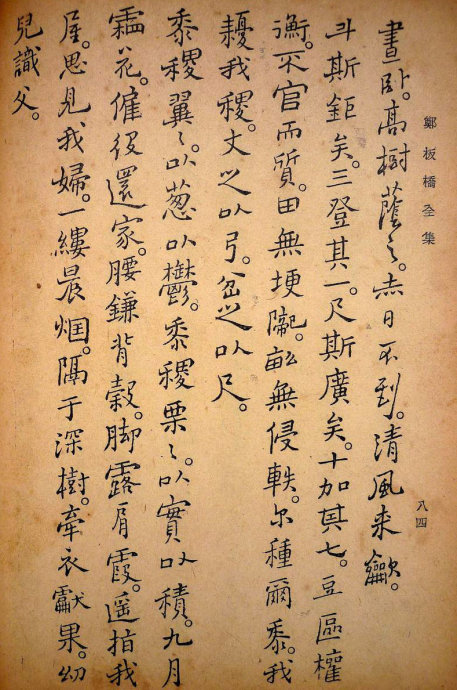 鄭板橋全集
八四
晝卧。高樹蔭之。赤日不到。清風來歙。
斗斯鉅矣。三登其一。尺斯廣矣。十加其七。豆區權
衡。不官而質。田無埂隴。畝無侵軼。尔種爾黍。我
耰我稷。丈之以弓。岔之以尺。
黍稷翼〻。以葱以鬱。黍稷栗〻。以實以積。九月
霜花。僱役還家。腰鎌背穀。脚露肩霞。遥指我
屋。思見我婦。一縷晨烟。隔于深樹。牽衣獻果。幼
兒識父。